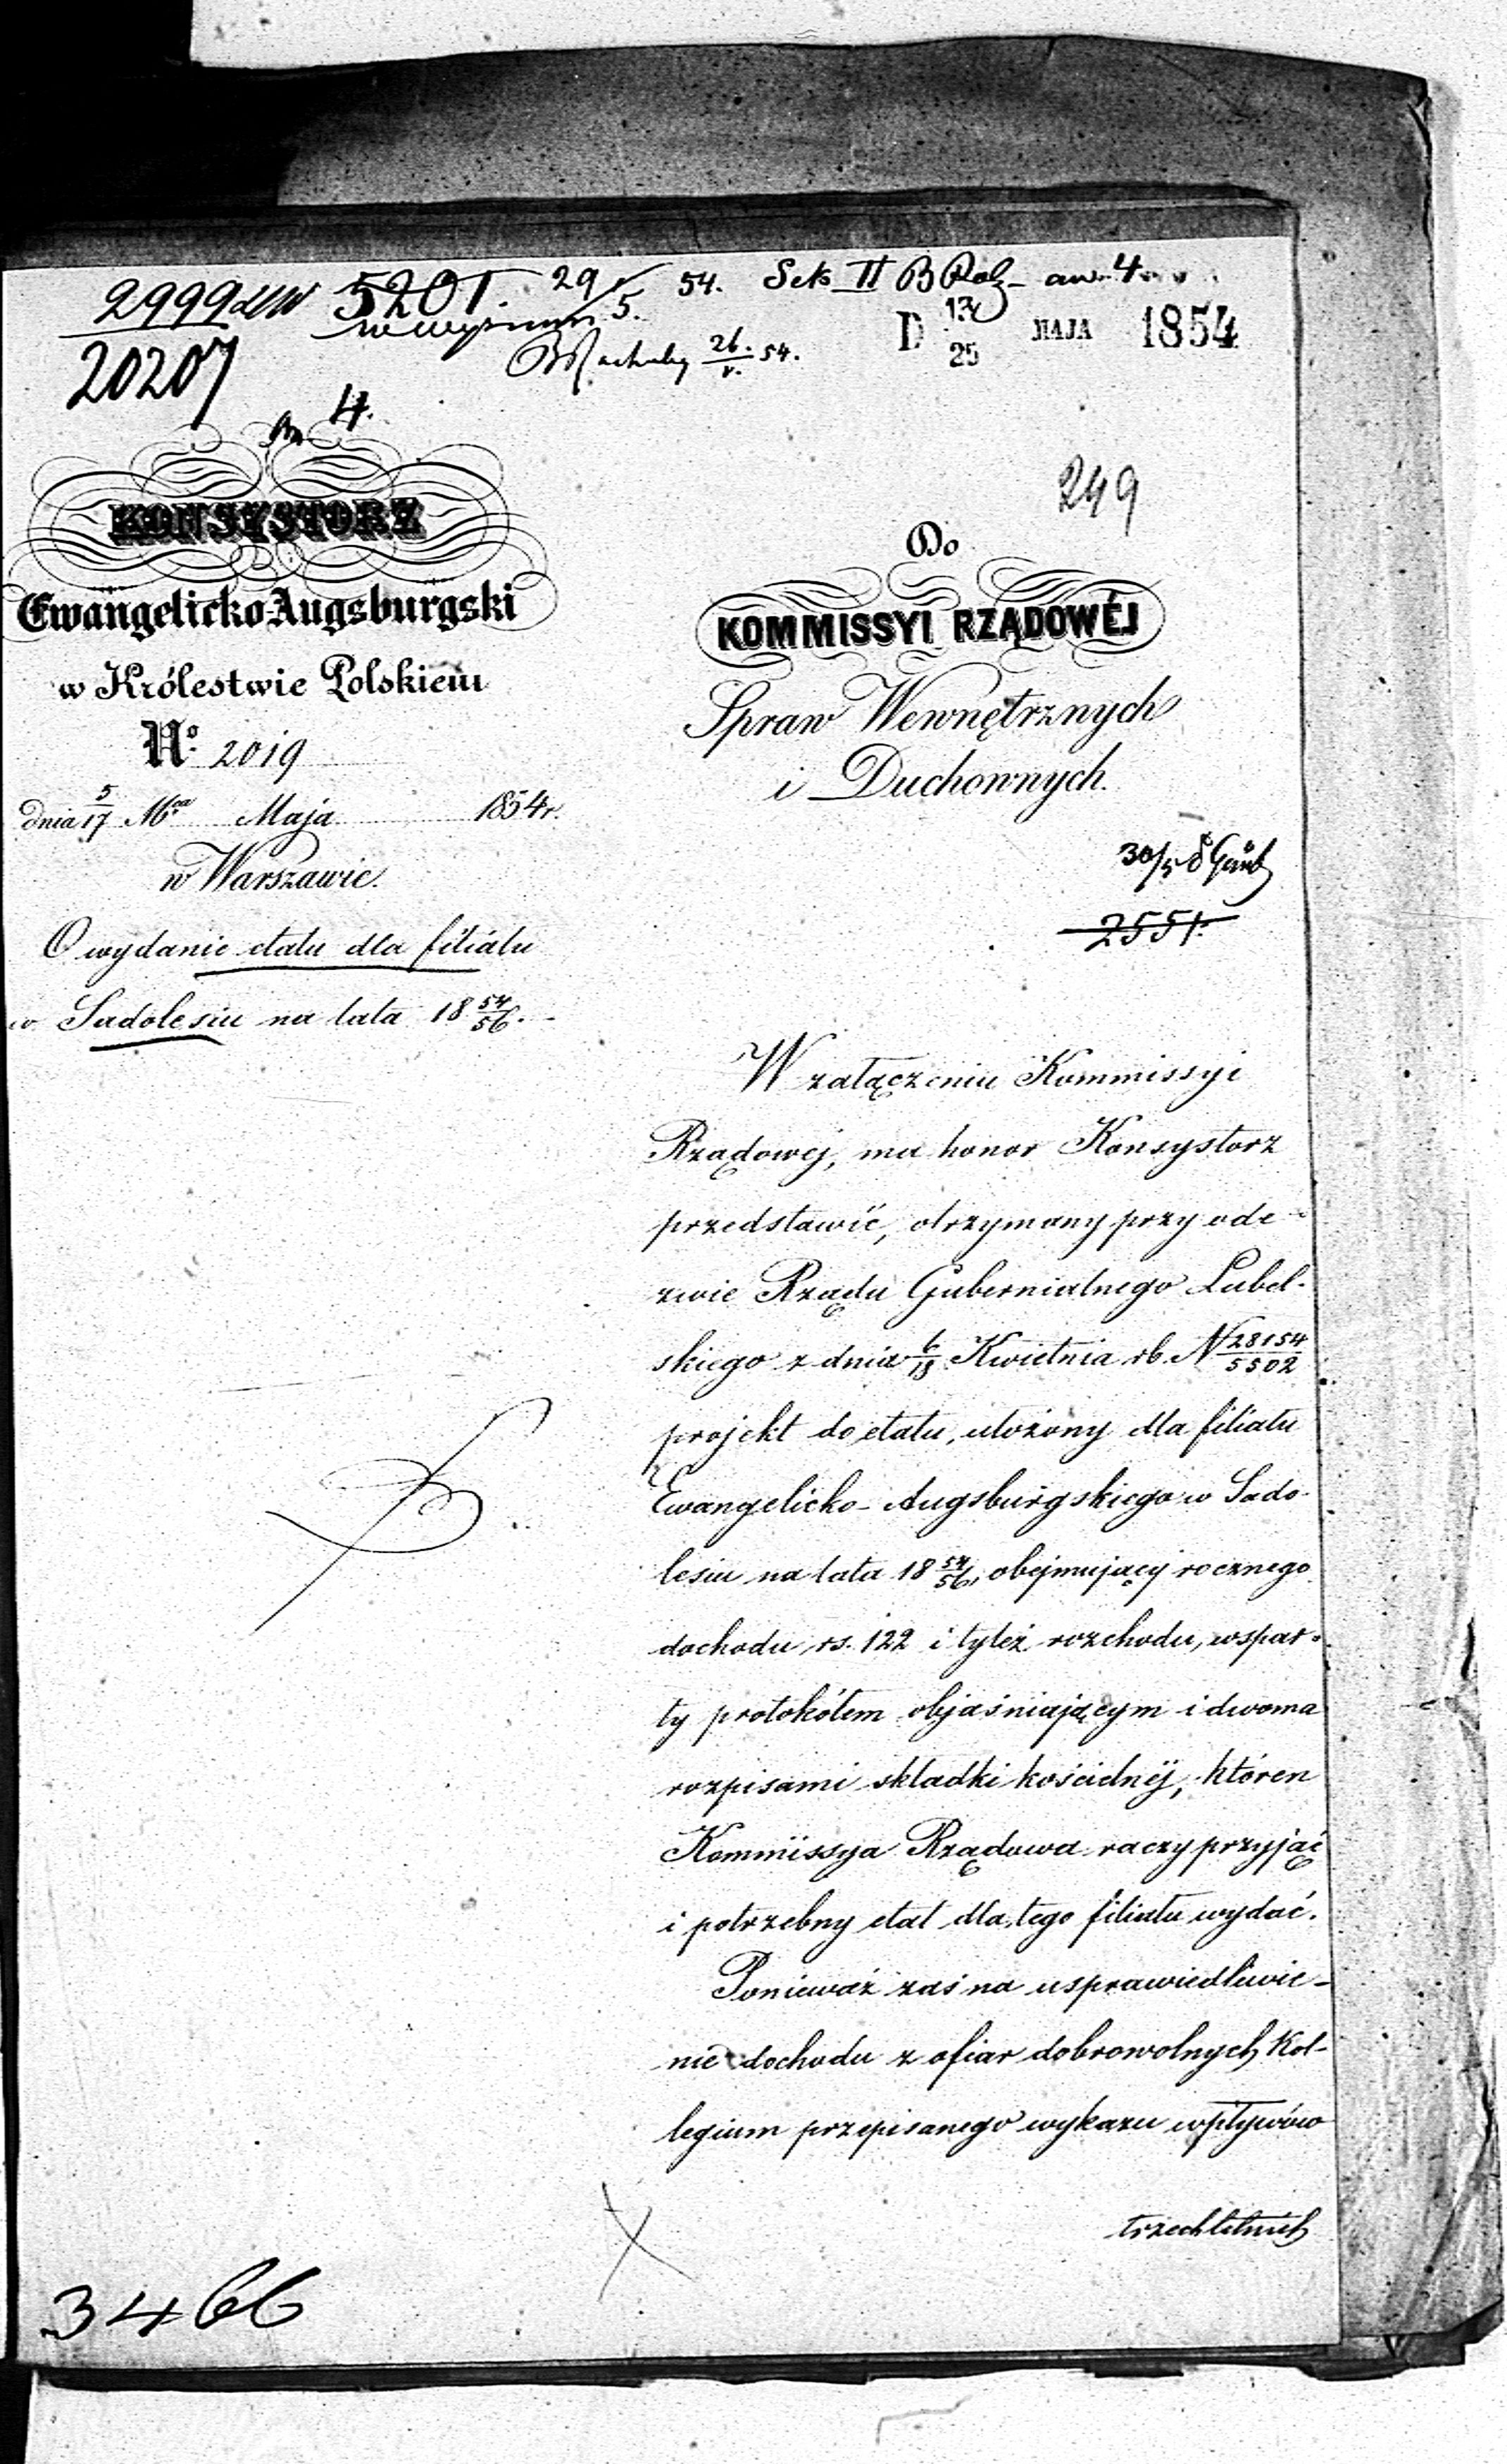 2999 5201. 29/5. 54. Sek II B Rel
20207
26/v. 54.
D 13/25 MAJA 1854
4.
249
KONSYSTORZ
Ewangelicko-Augsburgski
w Królestwie Polskiem
No. 2019
dnia 5/17 Mca Maja 1854 r.
w Warszawie.
O wydanie etatu dla filiału
w Sadolesiu na lata 18 54/56.
Do
KOMMISSYI RZĄDOWÉJ
Spraw Wewnętrznych
i Duchownych.
30/5
2551.
W załączeniu Kommissyi
Rządowej, ma honor Konsystorz
przedstawić, otrzymany przy ode-
zwie Rządu Gubernialnego Lubel-
skiego z dnia 6/18 Kwietnia rb. N 28154/5502
projekt do etatu, ułożony dla filiału
Ewangelicko-Augsburgskiego w Sado-
lesiu na lata 18 54/56, obejmujący rocznego
dochodu rs. 122 i tyleż rozchodu, wspar-
ty protokółem objaśniającym i dwoma
rozpisami składki kościelnéj, któren
Kommissya Rządowa raczy przyjąć
i potrzebny etat dla tego filiału wydać.
Ponieważ zaś na usprawiedliwie-
nie dochodu z ofiar dobrowolnych Kol-
legium przepisanego wykazu wpływów
trzechletnich
3466